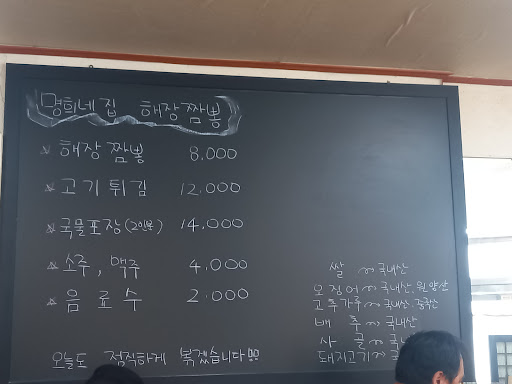 명희네집 해장짬뽕
※ 해장짬뽕 8.000
※ 고기튀김 12.000
※ 국물포장(2인분) 14.000
※ 소주, 맥주 4.000
※ 음료수 2.000
오늘도 정직하게 볶겠습니다!!!
쌀 ~ 국내산
오징어 ~ 국내산. 원양산
고추가루 ~ 국내산. 중국산
배추 ~ 국내산
사골 ~ 국내
돼지고기 ~ 국